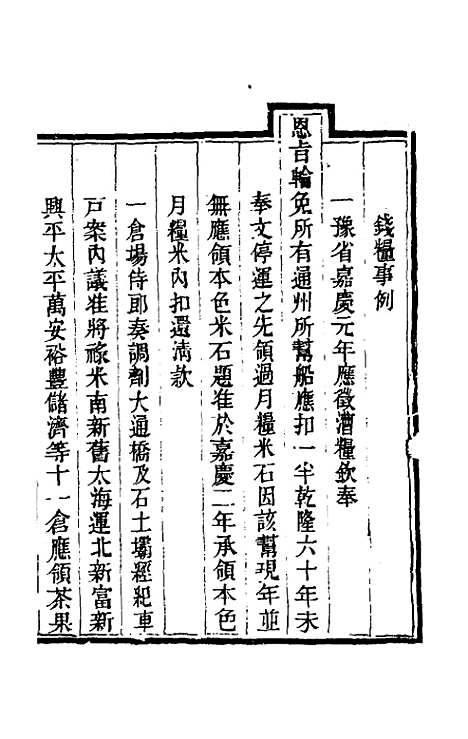 錢糧事例
一豫省嘉慶元年應徵漕糧欽奉
恩旨輪免所有通州所幫船應扣一半乾隆六十年未
奉文停運之先領過月糧米石因該幫現年並
無應領本色米石題准於嘉慶二年承領本色
月糧米內扣還淸款
一倉場侍郎奏調劑大通橋及石土壩經紀車
戸案內議准將祿米南新舊太海運北新富新
興平太平萬安裕豐儲濟等十一倉應領茶果